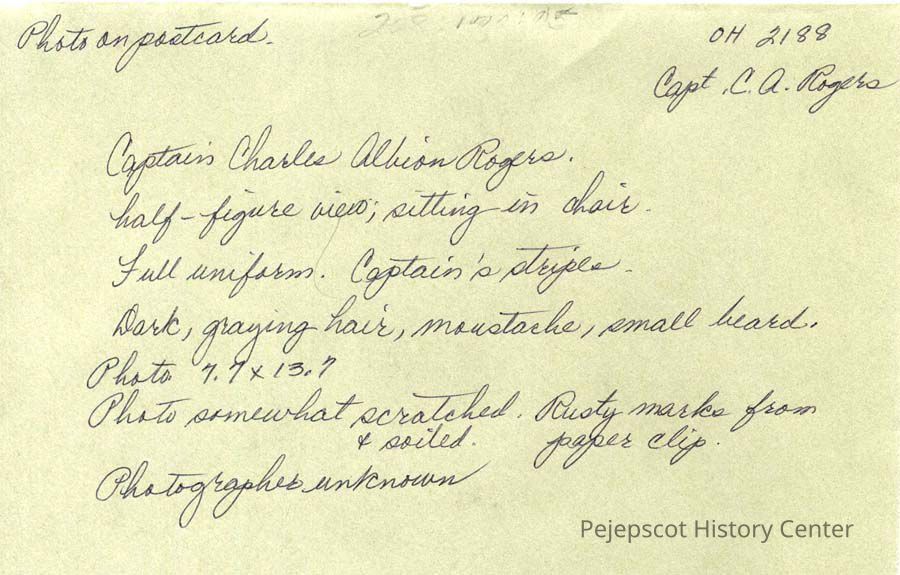 Photo on postcard.
OH 2188
Capt. C. A. Rogers
Captain Charles Albion Rogers.
half-figure view; sitting in chair.
Full uniform. Captain's stripes.
Dark, graying hair, moustache, small beard.
Photo 7.7 x 13.7
Photo somewhat scratched. Rusty marks from
& soiled. paper clip.
Photographer unknown
Pejepscot History Center